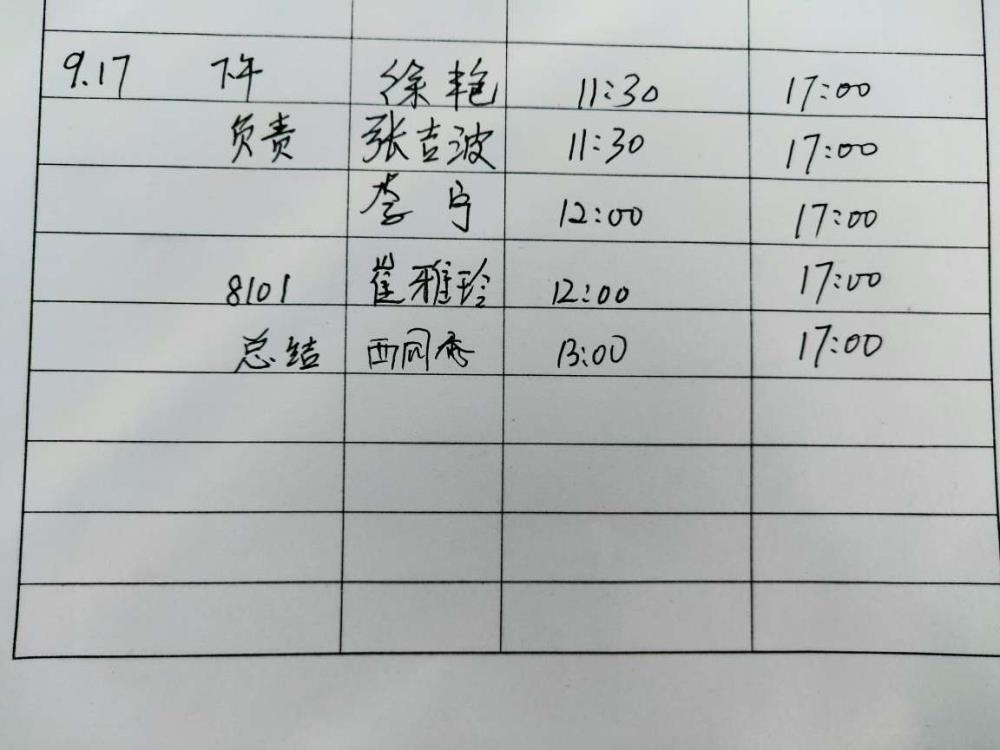 9.17 下午 徐艳 11:30 17:00
负责 张吉波 11:30 17:00
李宁 12:00 17:00
8101 崔雅玲 12:00 17:00
总结 13:00 17:00